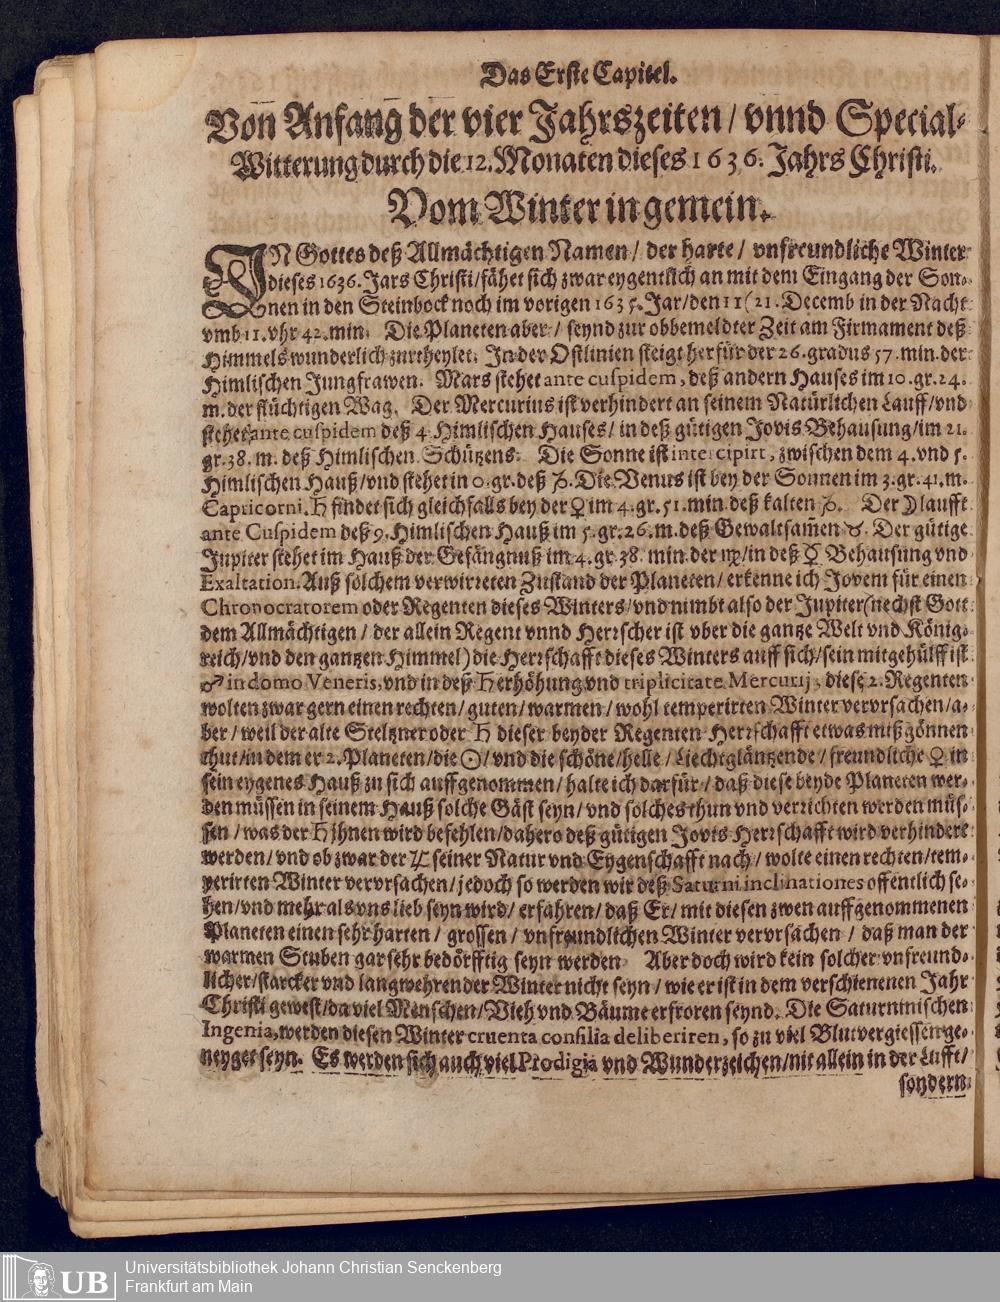 Das Erste Capitel.
Von Anfang der vier Jahrszeiten / vnnd Special-
Witterung durch die 12. Monaten dieses 1636. Jahrs Christi.
Vom Winter in gemein.
IN Gottes deß Allmächtigen Namen / der harte / vnfreundliche Winter
dieses 1636. Jars Christi / fähet sich zwar eygentlich an mit dem Eingang der Son-
nen in den Steinbock noch im vorigen 1635. Jar / den 11 (21. Decemb in der Nacht
vmb 11. vhr 42. min. Die Planeten aber / seynd zur obbemeldter Zeit am Firmament deß
Himmels wunderlich zurtheylet. In der Ostlinien steigt herfür der 26. gradus 57. min. der
Himlischen Jungfrawen. Mars stehet ante cuspidem, deß andern Hauses im 10. gr. 24.
m. der flüchtigen Wag. Der Mercurius ist verhindert an seinem Natürlichen Lauff / vnd
stehet ante cuspidem deß 4 Himlischen Hauses / in deß gütigen Jovis Behausung / im 21.
gr. 38. m. deß Himlischen Schützens. Die Sonne ist intercipirt, zwischen dem 4. vnd 5.
Himlischen Hauß / vnd stehet in 0. gr. deß ♑. Die Venus ist bey der Sonnen im 3. gr. 41. m.
Capricorni. ♄ findet sich gleichfalls bey der ♀ im 4. gr. 51. min. deß kalten ♑. Der ☽ laufft
ante Cuspidem deß 9. Himlischen Hauß im 5. gr. 26. m. deß Gewaltsamen ♉. Der gütige
Jupiter stehet im Hauß der Gefängnuß im 4. gr. 38. min. der ♍ / in deß ☿ Behausung vnd
Exaltation. Auß solchem verwirreten Zustand der Planeten / erkenne ich Jovem für einen
Chronocratorem oder Regenten dieses Winters / vnd nimbt also der Jupiter (nechst Gott
dem Allmächtigen / der allein Regent vnnd Herrscher ist vber die gantze Welt vnd König-
reich / vnd den gantzen Himmel) die Herrschafft dieses Winters auff sich / sein mitgehülff ist
♂ in domo Veneris, vnd in deß ♄ erhöhung vnd triplicitate Mercurij, diese 2. Regenten
wolten zwar gern einen rechten / guten / warmen / wohl temperirten Winter vervrsachen / a-
ber / weil der alte Steltzner oder ♄ dieser beyder Regenten Herrschafft etwas mißgönnen
thut / in dem er 2. Planeten / die ☉ / vnd die schöne / helle / Liechtgläntzende / freundliche ♀ in
sein eygenes Hauß zu sich auffgenommen / halte ich darfür / daß diese beyde Planeten wer-
den müssen in seinem Hauß solche Gäst seyn / vnd solches thun vnd verrichten werden müs-
sen / was der ♄ ihnen wird befehlen / dahero deß gütigen Jovis Herrschafft wird verhindert
werden / vnd ob zwar der ♃ seiner Natur vnd Eygenschafft nach / wolte einen rechten / tem-
perirten Winter vervrsachen / jedoch so werden wir deß Saturni inclinationes offentlich se-
hen / vnd mehr als vns lieb seyn wird / erfahren / daß Er / mit diesen zwen auffgenommenen
Planeten einen sehr harten / grossen / vnfreundlichen Winter vervrsachen / daß man der
warmen Stuben gar sehr bedörfftig seyn werden. Aber doch wird kein solcher vnfreund-
licher / starcker vnd langwehrender Winter nicht seyn / wie er ist in dem verschienenen Jahr
Christi gewest / da viel Menschen / Vieh vnd Bäume erfroren seynd. Die Saturninischen
Ingenia, werden diesen Winter cruenta consilia deliberiren, so zu viel Blutvergiessen ge-
neyget seyn. Es werden sich auch viel Prodigia vnd Wunderzeichen / nit allein in der Lufft /
sondern
UB
Universitätsbibliothek Johann Christian Senckenberg
Frankfurt am Main